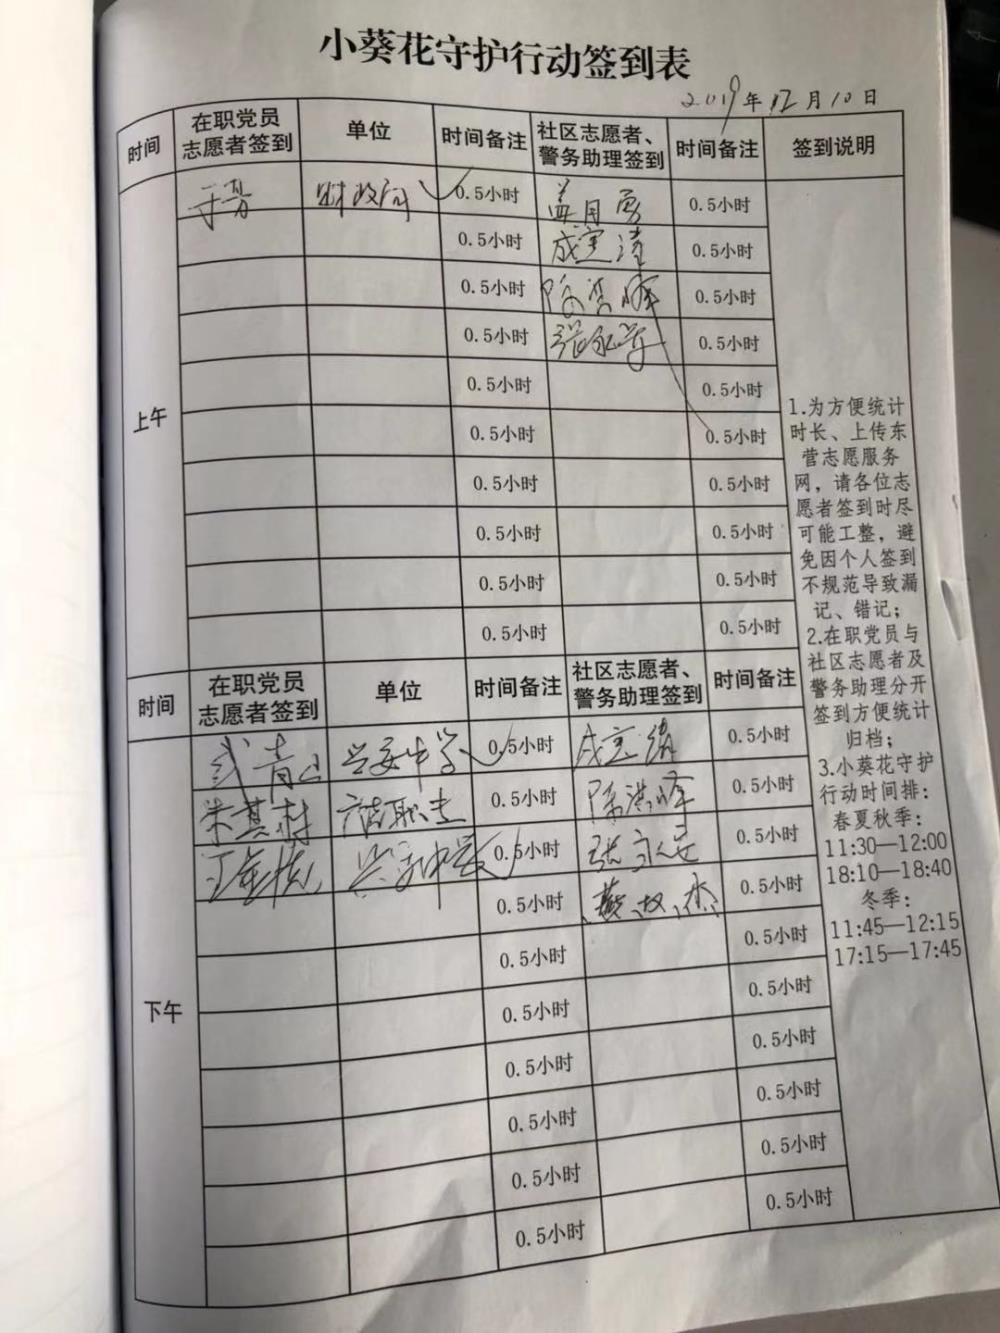 小葵花守护行动签到表
2019年12月10日
时间 在职党员志愿者签到 单位 时间备注 社区志愿者、警务助理签到 时间备注 签到说明
上午
财政局 0.5小时 盖月勇 0.5小时
0.5小时 0.5小时
0.5小时 0.5小时
0.5小时 张永军 0.5小时
0.5小时 0.5小时
0.5小时 0.5小时
0.5小时 0.5小时
0.5小时 0.5小时
0.5小时 0.5小时
0.5小时 0.5小时
时间 在职党员志愿者签到 单位 时间备注 社区志愿者、警务助理签到 时间备注
下午
0.5小时 0.5小时
0.5小时 陈洪峰 0.5小时
0.5小时 0.5小时
0.5小时 0.5小时
0.5小时 0.5小时
0.5小时 0.5小时
0.5小时 0.5小时
0.5小时 0.5小时
0.5小时 0.5小时
0.5小时 0.5小时
1.为方便统计
时长、上传东
营志愿服务
网，请各位志
愿者签到时尽
可能工整，避
免因个人签到
不规范导致漏
记、错记；
2.在职党员与
社区志愿者及
警务助理分开
签到方便统计
归档；
3.小葵花守护
行动时间排：
春夏秋季：
11:30—12:00
18:10—18:40
冬季：
11:45—12:15
17:15—17:45